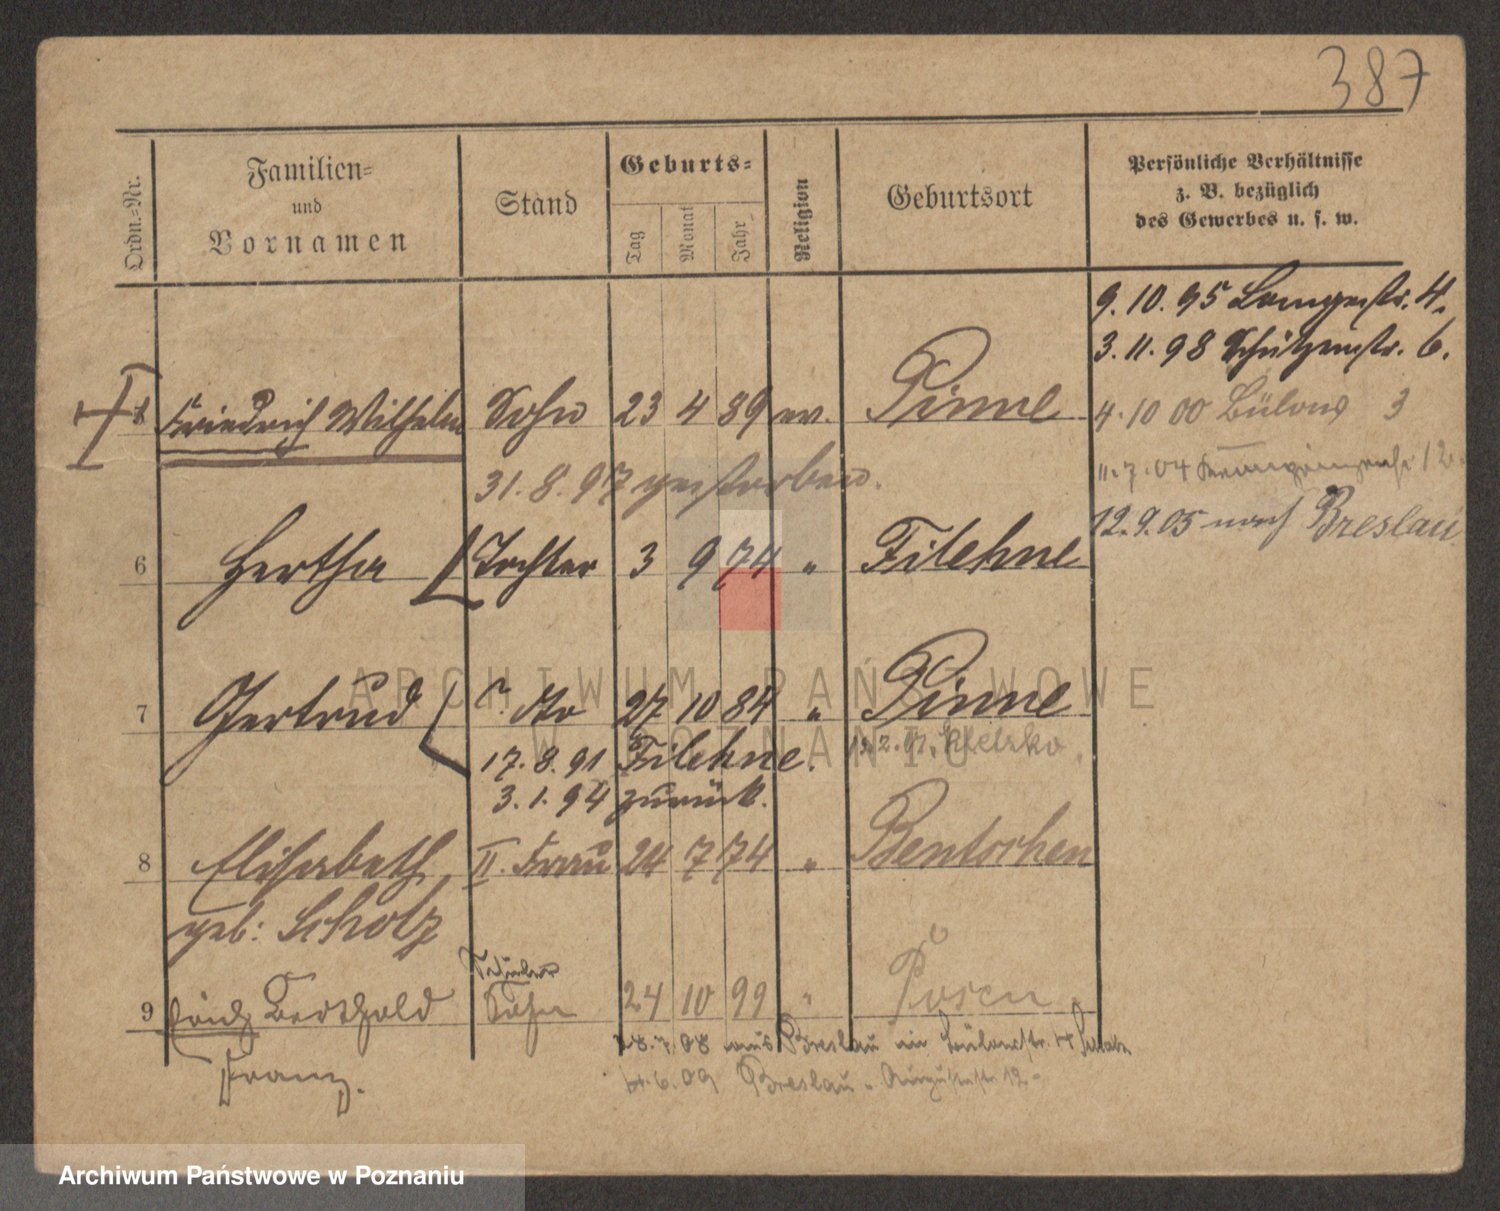 387
Ordn.-Nr.
Familien-
und
Vornamen
Stand
Geburts-
Tag
Monat
Jahr
Religion
Geburtsort
Persönliche Verhältnisse
z. B. bezüglich
des Gewerbes u. s. w.
9.10.95 Langestr. 4.
3.11.98 Schützenstr. 6.
Friedrich Wilhelm Sohn 23 4 89 ev. Pinne
4.10 00 Bülow 3
31.8.97 gestorben.
11.7.04 12
12.9.05 nach Breslau
6 Hertha Tochter 3 9 74 " Filehne
7 Gertrud 27 10 84 " Pinne
17.8.91 Filehne.
3.1.94 zurück.
8 Elisabeth II. Frau 24 7 74 " Bentschen
geb: Scholz
Schüler
9 Erich Berthold Sohn 24 10 99 " Posen
Franz.
aus Breslau in Bülowstr.
6.09 Breslau Augustastr. 12
ARCHIWUM PAŃSTWOWE
W POZNANIU
Archiwum Państwowe w Poznaniu